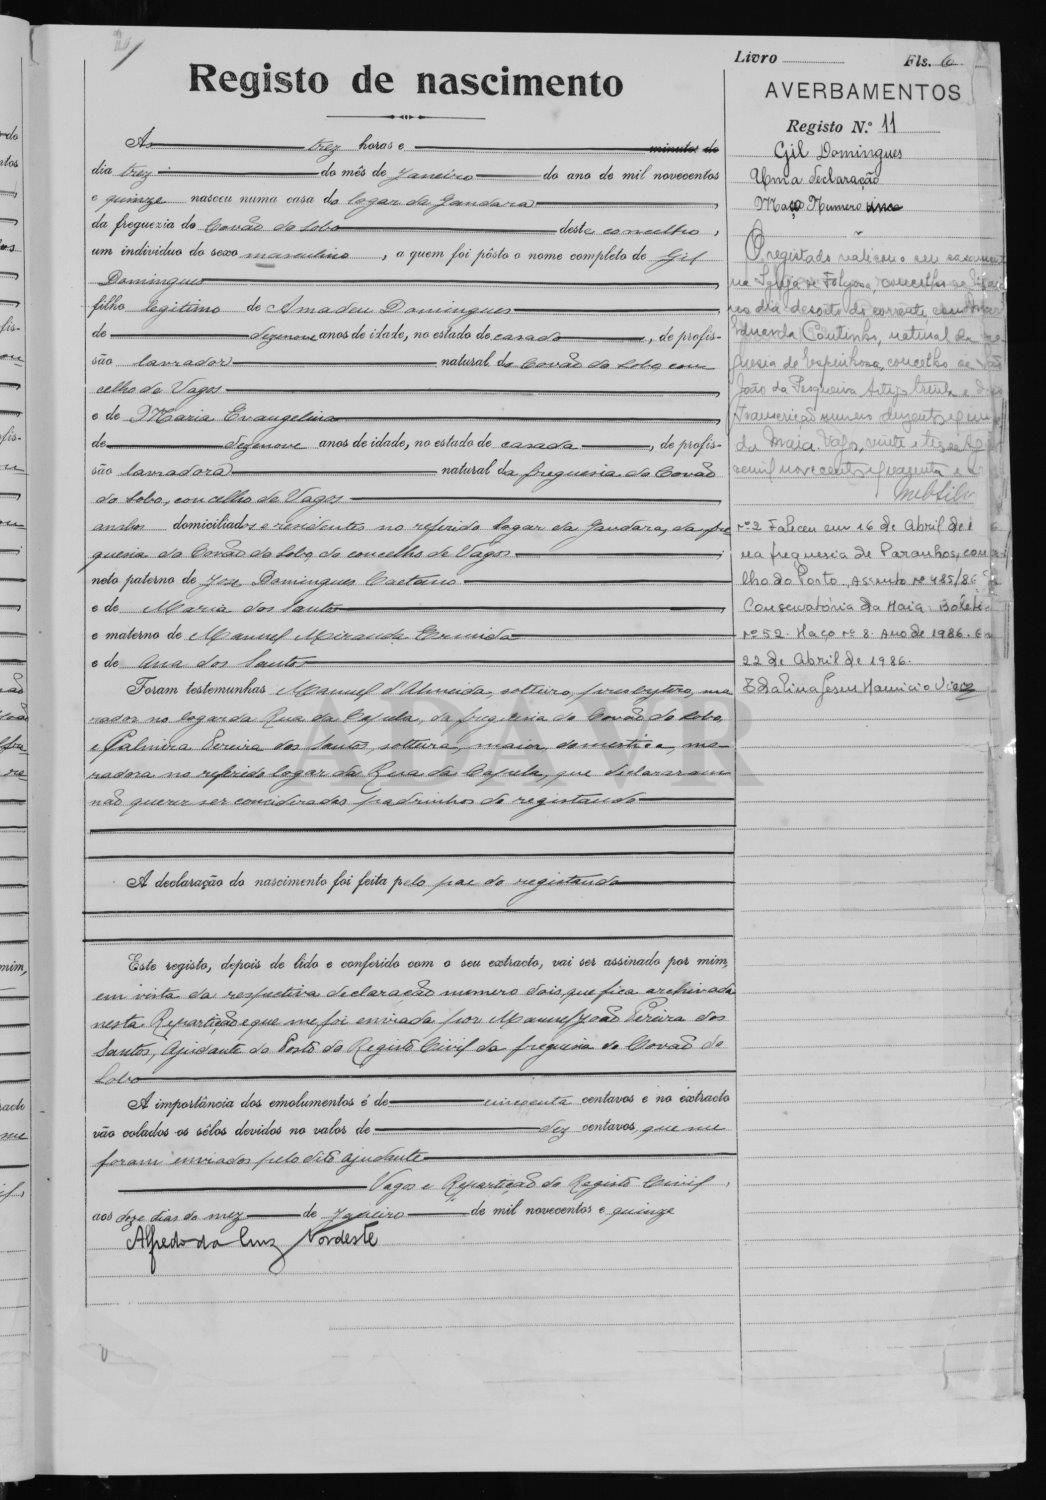 Registo de nascimento
A's trez horas e minutos do
dia trez do mês de Janeiro do ano de mil novecentos
e quinze nasceu numa casa do logar da Gandara
da freguezia do Covão do Lobo deste concelho,
um individuo do sexo masculino, a quem foi pôsto o nome completo de Gil
Domingues
filho legitimo de Amadeu Domingues
de dezenove anos de idade, no estado de casado, de profis-
são lavrador natural do Covão do Lobo, con-
celho de Vagos
e de Maria Evangelina
de dezenove anos de idade, no estado de casada, de profis-
são lavradora natural da freguesia do Covão
do Lobo, concelho de Vagos
ambos domiciliados e residentes no referido logar da Gandara, da fre
guesia do Covão do Lobo, do concelho de Vagos
neto paterno de José Domingues Caetano
e de Maria dos Santos
e materno de Manuel Miranda
e de Ana dos Santos
Foram testemunhas Manuel d'Almeida, solteiro, presbytero, mo
rador no logar da Rua da Capela, da freguesia do Covão do Lobo,
e Palmira Pereira dos Santos, solteira, maior, domestica, mo-
radora no referido logar da Rua da Capela, que declararam
não querer ser considerados padrinhos do registando
A declaração do nascimento foi feita pelo pae do registando
Este registo, depois de lido e conferido com o seu extracto, vai ser assinado por mim,
em vista da respectiva declaração numero dois, que fica archivada
nesta Repartição e que me foi enviada por Manuel João Pereira dos
Santos, Ajudante do Posto do Registo Civil da freguesia do Covão do
Lobo
A importância dos emolumentos é de cincoenta centavos e no extracto
vão colados os sêlos devidos no valor de dez centavos, que me
foram enviados pelo dito ajudante
Vagos e Repartição do Registo Civil,
aos doze dias do mez de Janeiro de mil novecentos e quinze
Alfredo da Cruz Nordeste
Livro Fls. 6
AVERBAMENTOS
Registo N.º 11
Gil Domingues
Uma declaração
Maço Numero
O registado realizou o seu casament
na Igreja de Folgosa concelho da
no dia dezoito do corrente com
Eduarda Coutinho, natural da fre
guesia de Espinhosa, concelho de São
João da Pesqueira
Transcrição numero duzentos e
da Maia. Vagos, vinte e tres de
de mil novecentos e quarenta e
nº 2 Faleceu em 16 de Abril de 1 6
na freguesia de Paranhos, conc
lho do Porto. Assento nº 485/86
Conservatória da Maia. Boleti
nº 52. Maço nº 8. Ano de 1986. Em
22 de Abril de 1986.
ADAVR